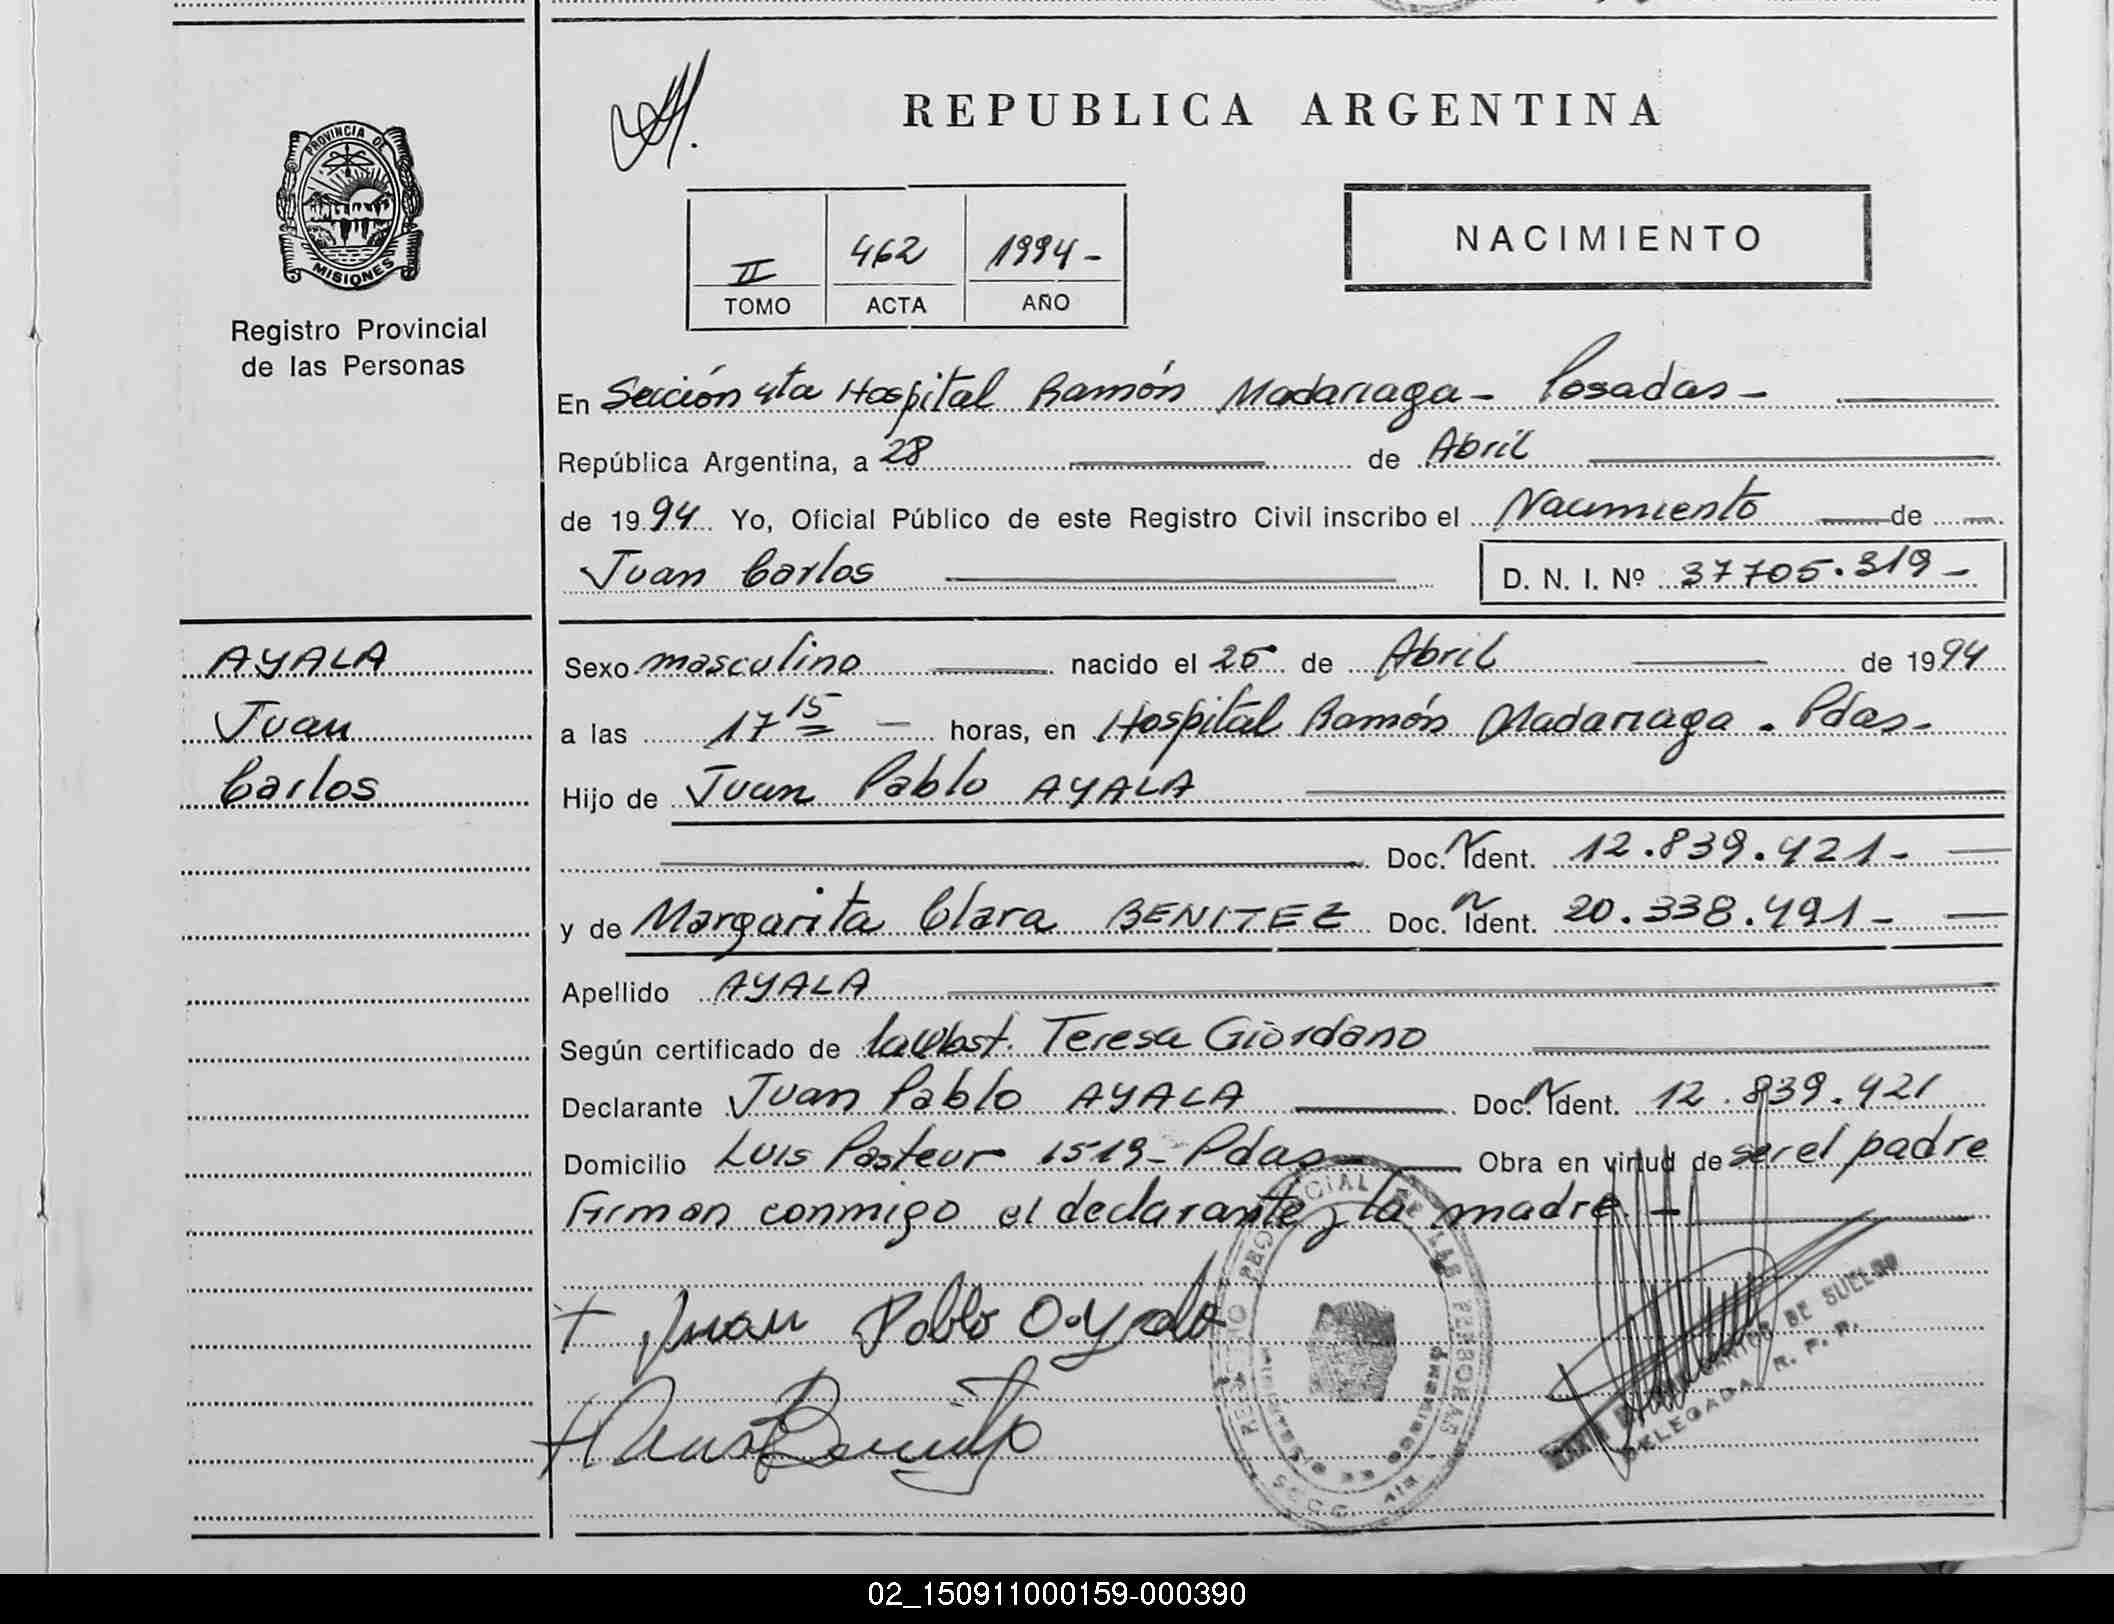 PROVINCIA DE
MISIONES
Registro Provincial
de las Personas
AYALA
Juan
Carlos
REPUBLICA ARGENTINA
II 462 1994-
TOMO ACTA AÑO
NACIMIENTO
En Sección 4ta Hospital Ramón Madariaga - Posadas -
República Argentina, a 28 de Abril
de 1994 Yo, Oficial Público de este Registro Civil inscribo el Nacimiento de
Juan Carlos D. N. I. Nº 37705.319-
Sexo masculino nacido el 25 de Abril de 1994
a las 17 15 horas, en Hospital Ramón Madariaga - Pdas-
Hijo de Juan Pablo AYALA
Doc. N Ident. 12.839.421-
y de Margarita Clara BENITEZ Doc. N Ident. 20.338.491-
Apellido AYALA
Según certificado de la Obst. Teresa Giordano
Declarante Juan Pablo AYALA Doc. N Ident. 12.839.421
Domicilio Luis Pasteur 1519- Pdas- Obra en virtud de ser el padre
Firman conmigo el declarante y la madre -
Juan Pablo Ayala
DE SUELDO
DELEGADA R. P. P.
02_150911000159-000390